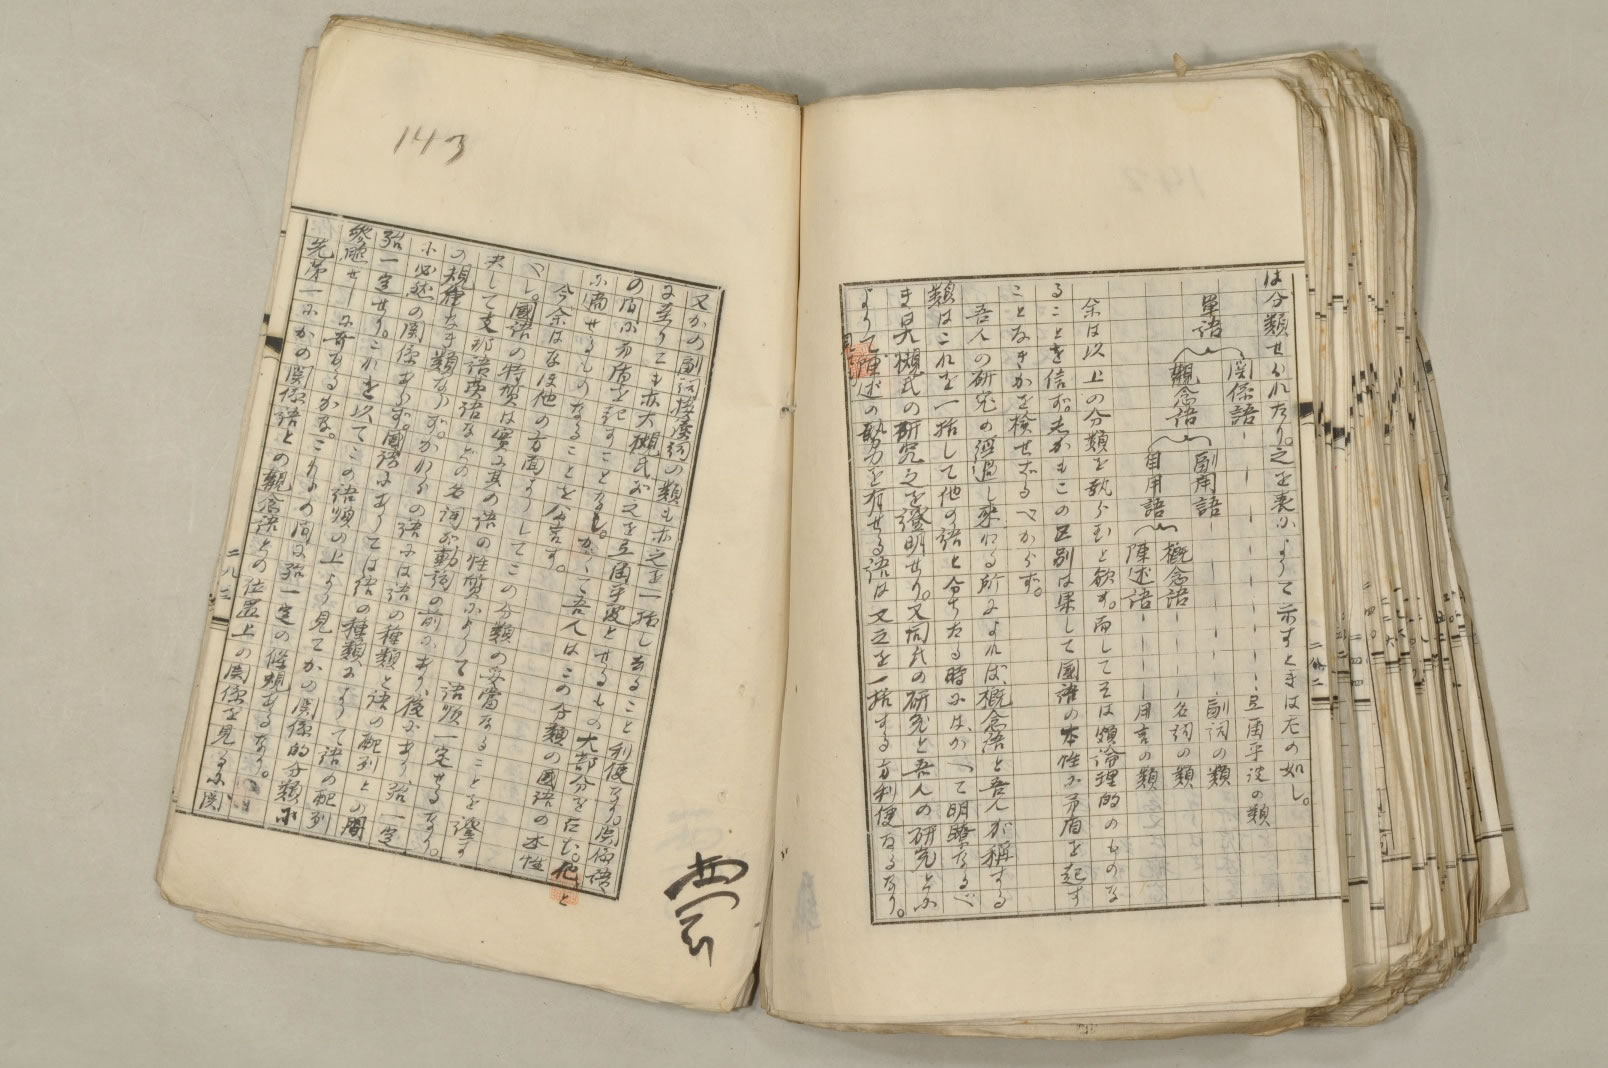 は分類せられたり。之を表によりて示すときは左の如し。
單語
関係語 ー ー ー ー ー 弖爾乎波の類
觀念語
副用語 ー ー ー 副詞の類
自用語
概念語 ー ー 名詞の類
陳述語 ー ー ー 用言の類
余は以上の分類を執らむと欲す。而してそは頗論理的のものな
ることを信ず。しかもこの区別は果して國語の本性に矛盾を起す
ことなきかを檢せざるべからず。
吾人の研究の經過し來れる所によれば概念語と吾人が稱する
類はこれを一括して他の語と分ちたる時にはかへて明瞭なるべ
きは大槻氏の研究之を證明せり。又同氏の研究と吾人の研究とに
よりて陳述の勢力を有せる語は又之を一括する方利便なるなり。
143
又かの副詞接續詞の類も亦之を一括しおること利便なり。関係語
に至りても亦大槻氏が之を弖爾乎波とせるもの大部分を占む。他と
の間に矛盾を起すことなし。かくて吾人はこの分類の國語の本性
に適せるものなることを公言す。
今余はなほ他の方面よりしてこの分類の妥當なることを證す
べし。國語の特質は實に其の語の性質によりて語順一定せるなり。
決して支那語英語などの名詞が動詞の前にあり、後にあり、殆一定
の規律なき類ならず。かれらの語には語の種類と語の配列との間
に必然の関係あらず。國語にありては語の種類によりて語の配列
殆一定せり。これを以てこの語順の上より見てかの関係的分類に
參照せ
先第一にかの関係語との觀念語との位置上の関係を見るに関
二八二
二八三